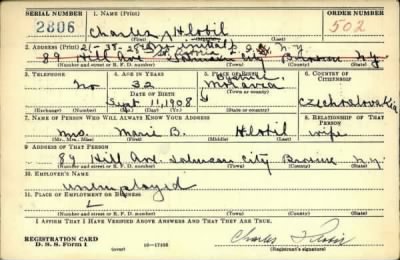 SERIAL NUMBER 1. NAME (Print) ORDER NUMBER
2806 Charles Hlobil 502
(First) (Middle) (Last)
2. ADDRESS (Print)
89 Hill Ave. Johnson City Broome N.Y.
(Number and street or R. F. D. number) (Town) (County) (State)
3. TELEPHONE 4. AGE IN YEARS 5. PLACE OF BIRTH 6. COUNTRY OF CITIZENSHIP
No 32 Moravia
DATE OF BIRTH (Town or county)
Sept. 11, 1908 Czechoslovakia
(Exchange) (Number) (Mo.) (Day) (Yr.) (State or country)
7. NAME OF PERSON WHO WILL ALWAYS KNOW YOUR ADDRESS 8. RELATIONSHIP OF THAT PERSON
Mrs. Marie B. Hlobil wife
(Mr., Mrs., Miss) (First) (Middle) (Last)
9. ADDRESS OF THAT PERSON
89 Hill Ave. Johnson City Broome N.Y.
(Number and street or R. F. D. number) (Town) (County) (State)
10. EMPLOYER'S NAME
Unemployed
11. PLACE OF EMPLOYMENT OR BUSINESS
(Number and street or R. F. D. number) (Town) (County) (State)
I AFFIRM THAT I HAVE VERIFIED ABOVE ANSWERS AND THAT THEY ARE TRUE.
REGISTRATION CARD Charles Hlobil
D. S. S. Form 1 (over) 16—17105 (Registrant's signature)